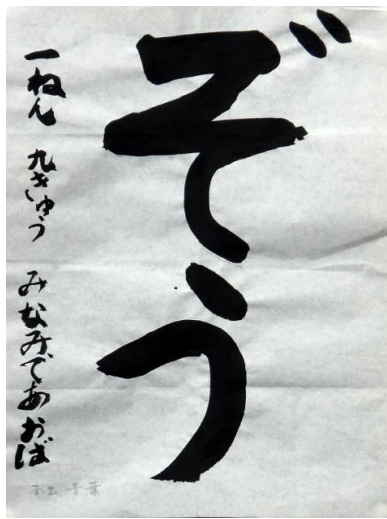 ぞう
一ねん 九きゅう みなみであおば
南出 青葉